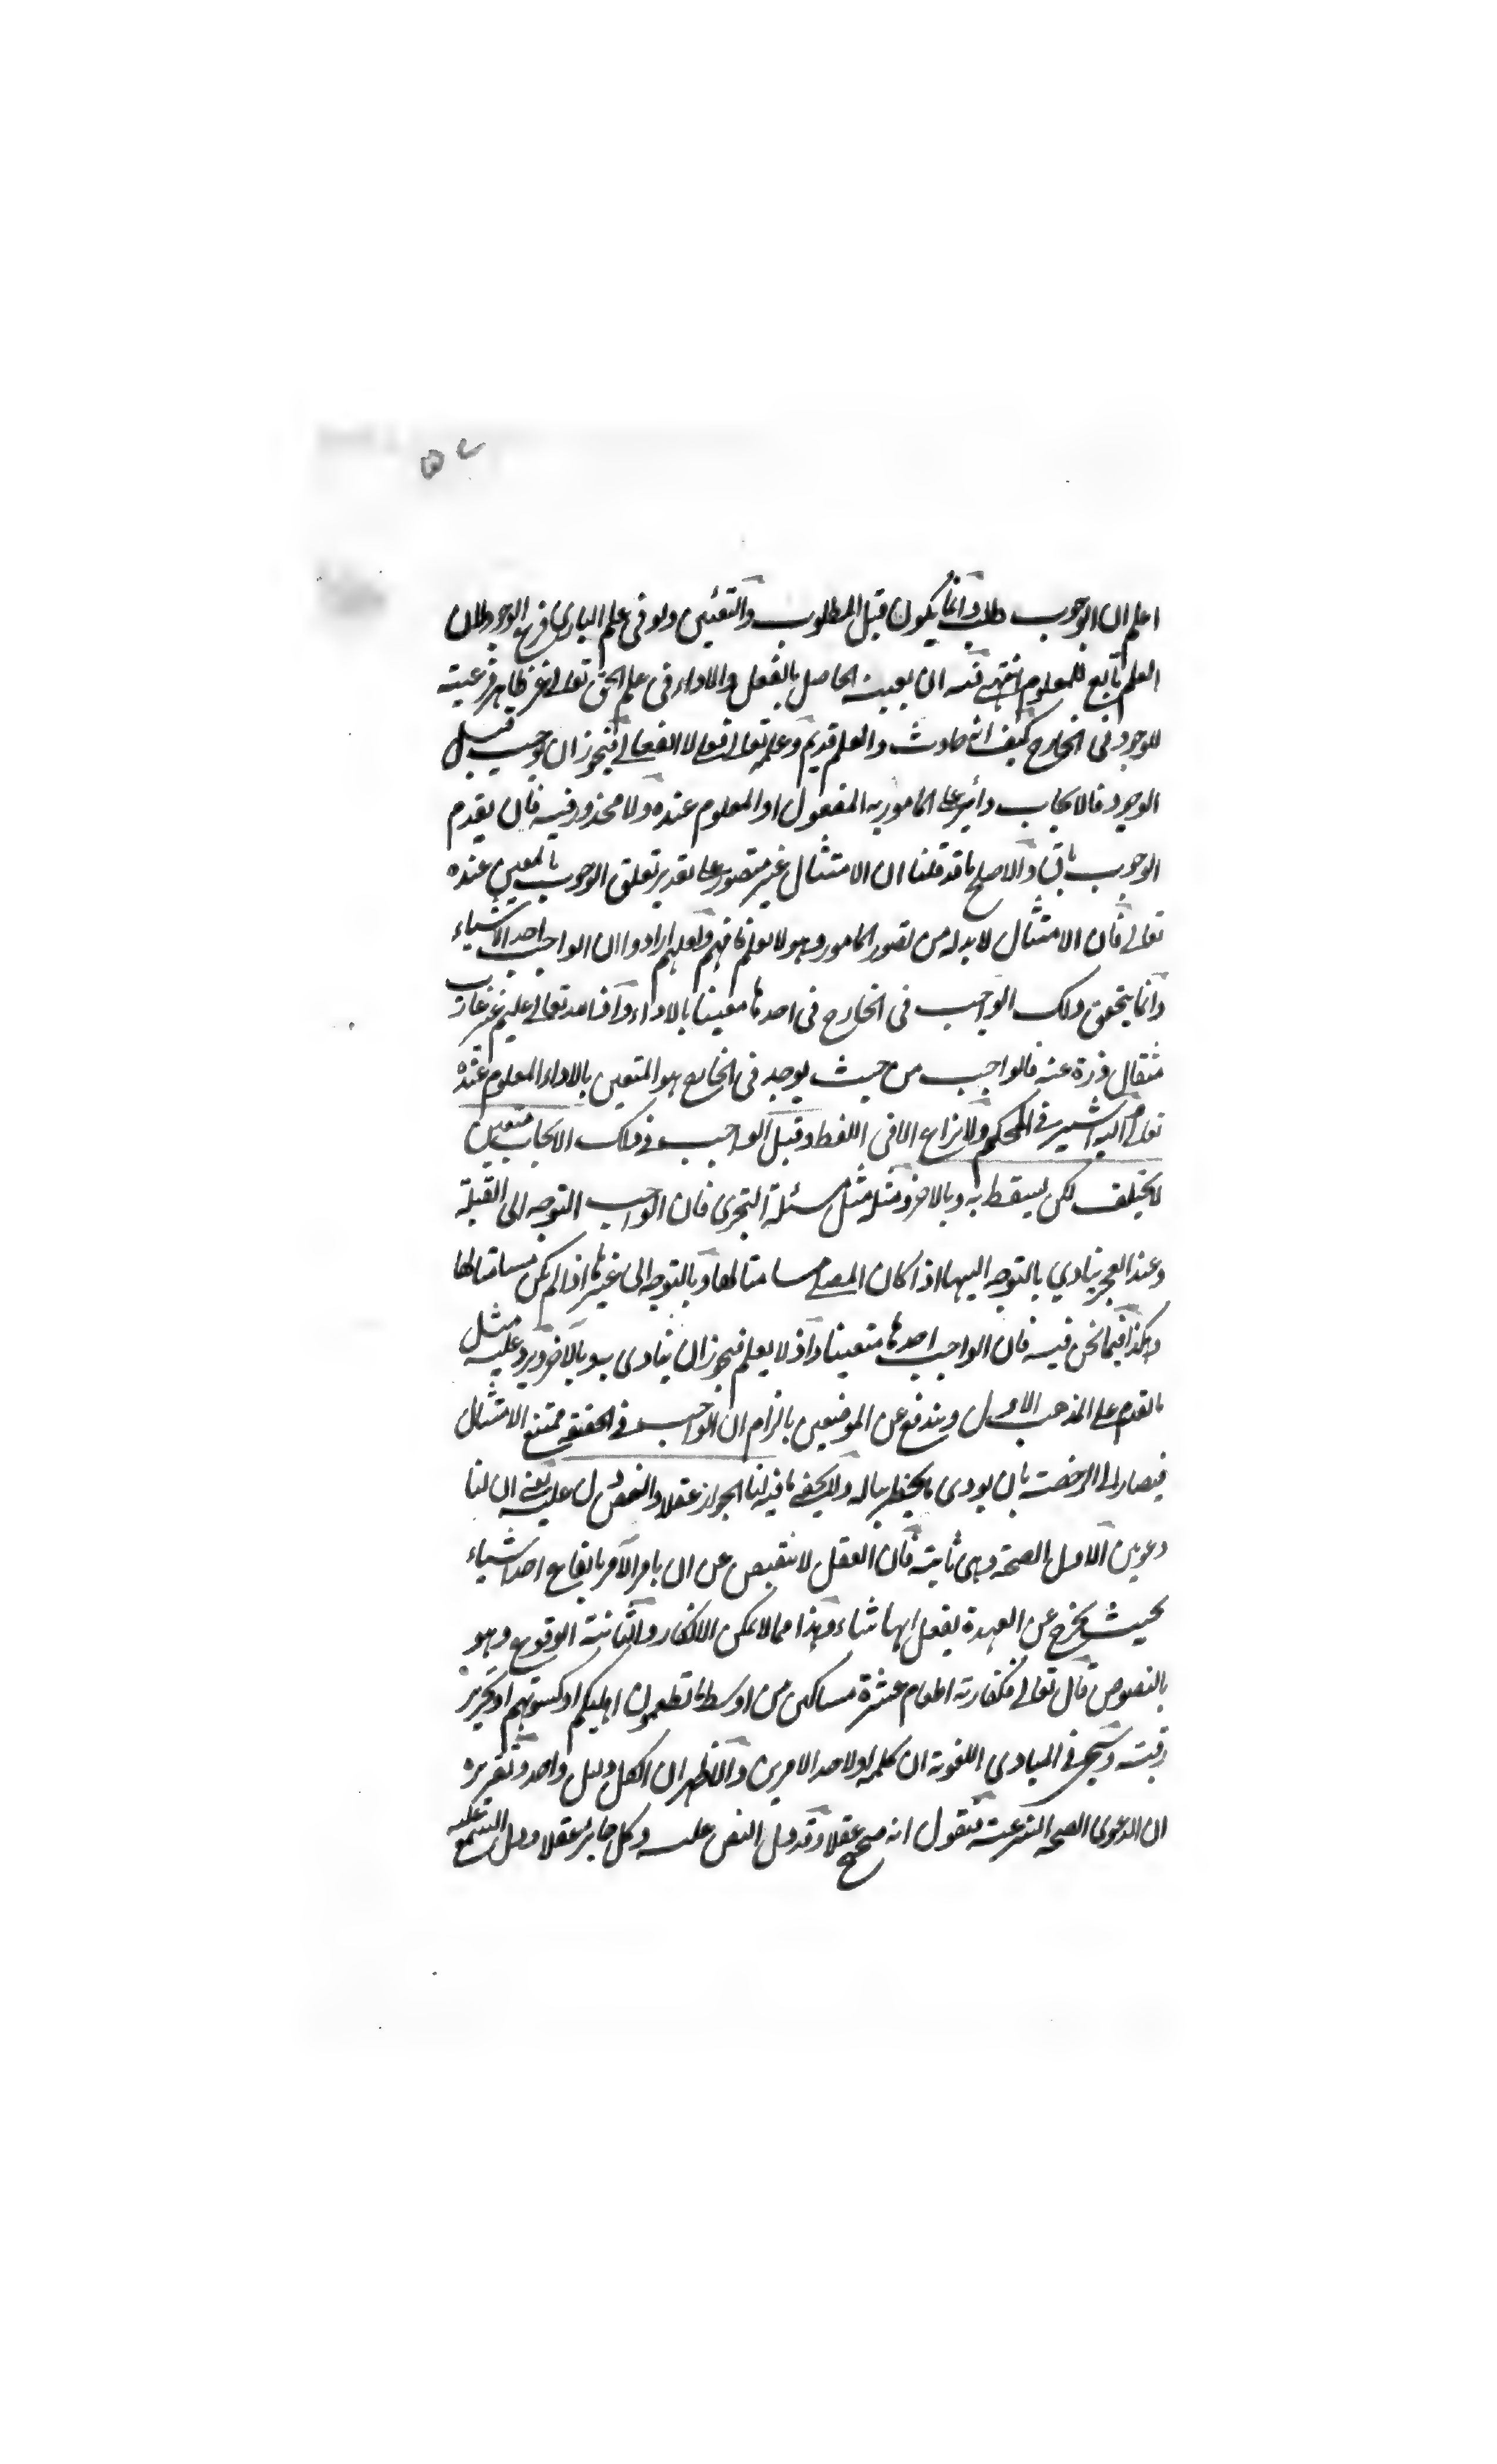 اعلم ان الوجوب طلب وانما يكون قبل المطلوب والتعيين ولو فى علم البارى فرع الوجود لان
العلم تابع للمعلوم انتهى فيه ان تعيينه الحاصل بالفعل والاداء فى علم الحق تعالى غير ظاهر فرعيته
للوجود فى الخارج كيف انه حادث والعلم قديم وعلمه تعالى فعلى لا انفعالى فيجوز ان يوجب قبل
الوجود فالايجاب دائر على المامور به المفعول او المعلوم عنده ولا محذور فيه فان تقدم
الوجوب باق والاصلح ما قد قلنا ان الامتثال غير متصور على تقدير تعلق الوجوب بالمعين عنده
تعالى فان الامتثال لا بد له من تصور المامور وهو لا يعلم فافهم ولعلهم ارادوا ان الواجب احد الاشياء
وانما يتحقق ذلك الواجب فى الخارج فى احدها معينا بالاداء واذ الله تعالى عليم غير عازب
مثقال ذرة عنه فالواجب من حيث يوجد فى الخارج هو المتعين بالاداء المعلوم عنده
تعالى اليه اشير فى المحكم ولا نزاع الا فى اللفظ وقيل الواجب فى ذلك الايجاب متعين
لا يختلف لكن يسقط به وبالاخر ومثله مثل مسئلة التحرى فان الواجب التوجه الى القبلة
وعند العجز يتادى بالتوجه اليها اذا كان المصلى مسامتا لها وبالتوجه الى غيرها اذا لم يكن مسامتا لها
وهكذا فيما نحن فيه فان الواجب احدها متعينا واذ لا يعلم فيجوز ان يتادى به وبالاخر ويرد عليه مثل
ما تقدم على المذهب الاول ويندفع عن الموضعين بالزام ان الواجب فى الحقيقه ممتنع الامتثال
فيصار الى الرخصت بان يودى ما يخطر بباله ولا يخفى ما فيه لنا الجواز عقلا والنص دل عليه يعنى ان لنا
دعويين الاول الصحة وهى ثابتة فان العقل لا ينقبض عن ان يامر الآمر بايقاع احد اشياء
بحيث يخرج عن العهدة بفعل ايها شاء وهذا مما لا يمكن الانكار والثانية الوقوع وهو
بالنصوص قال تعالى فكفارته اطعام عشرة مساكين من اوسط ما تطعمون اهليكم او كسوتهم او تحرير
رقبته وسيجى فى المبادى اللغوية ان كلمة او لاحد الامرين والاظهر ان الكل دليل واحد وتقريره
ان الدعوى الصحه الشرعية فنقول انه صحيح عقلا وقد دل النص عليه وكل جايز عقلا ودل السمع عليه